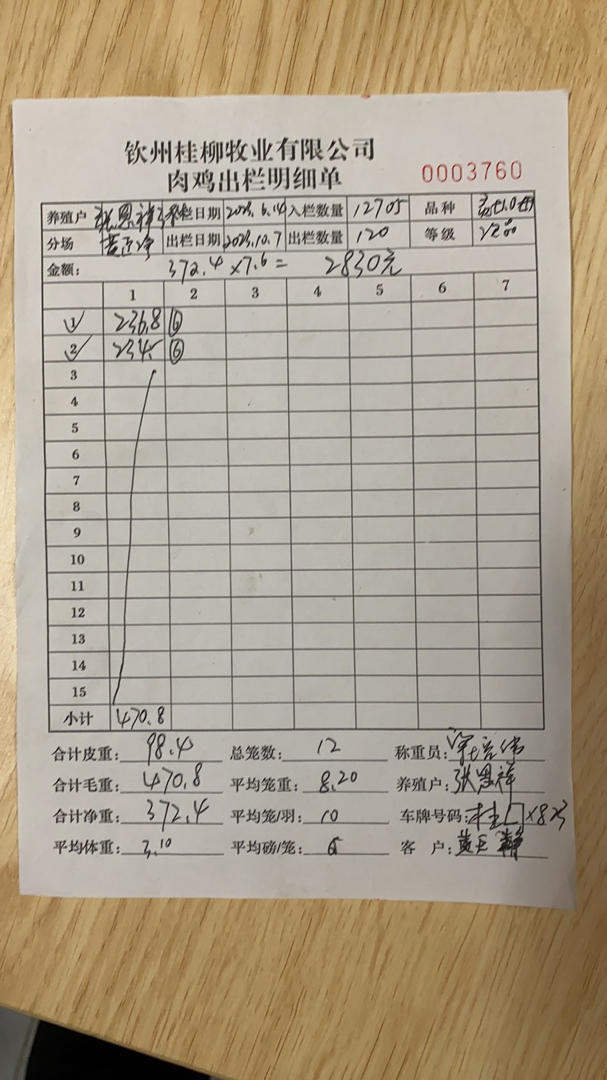 钦州桂柳牧业有限公司
肉鸡出栏明细单
0003760
养殖户 张恩祥 入栏日期 2023.6.14 入栏数量 12705 品种
分场 出栏日期 2023.10.7 出栏数量 120 等级
金额: 372.4×7.6= 2830元
1 2 3 4 5 6 7
1 236.8 ⑥
2 234 ⑥
3
4
5
6
7
8
9
10
11
12
13
14
15
小计 470.8
合计皮重: 98.4 总笼数: 12 称重员:
合计毛重: 470.8 平均笼重: 8.20 养殖户: 张恩祥
合计净重: 372.4 平均笼/羽: 10 车牌号码:
平均体重: 3.10 平均磅/笼: 6 客 户: